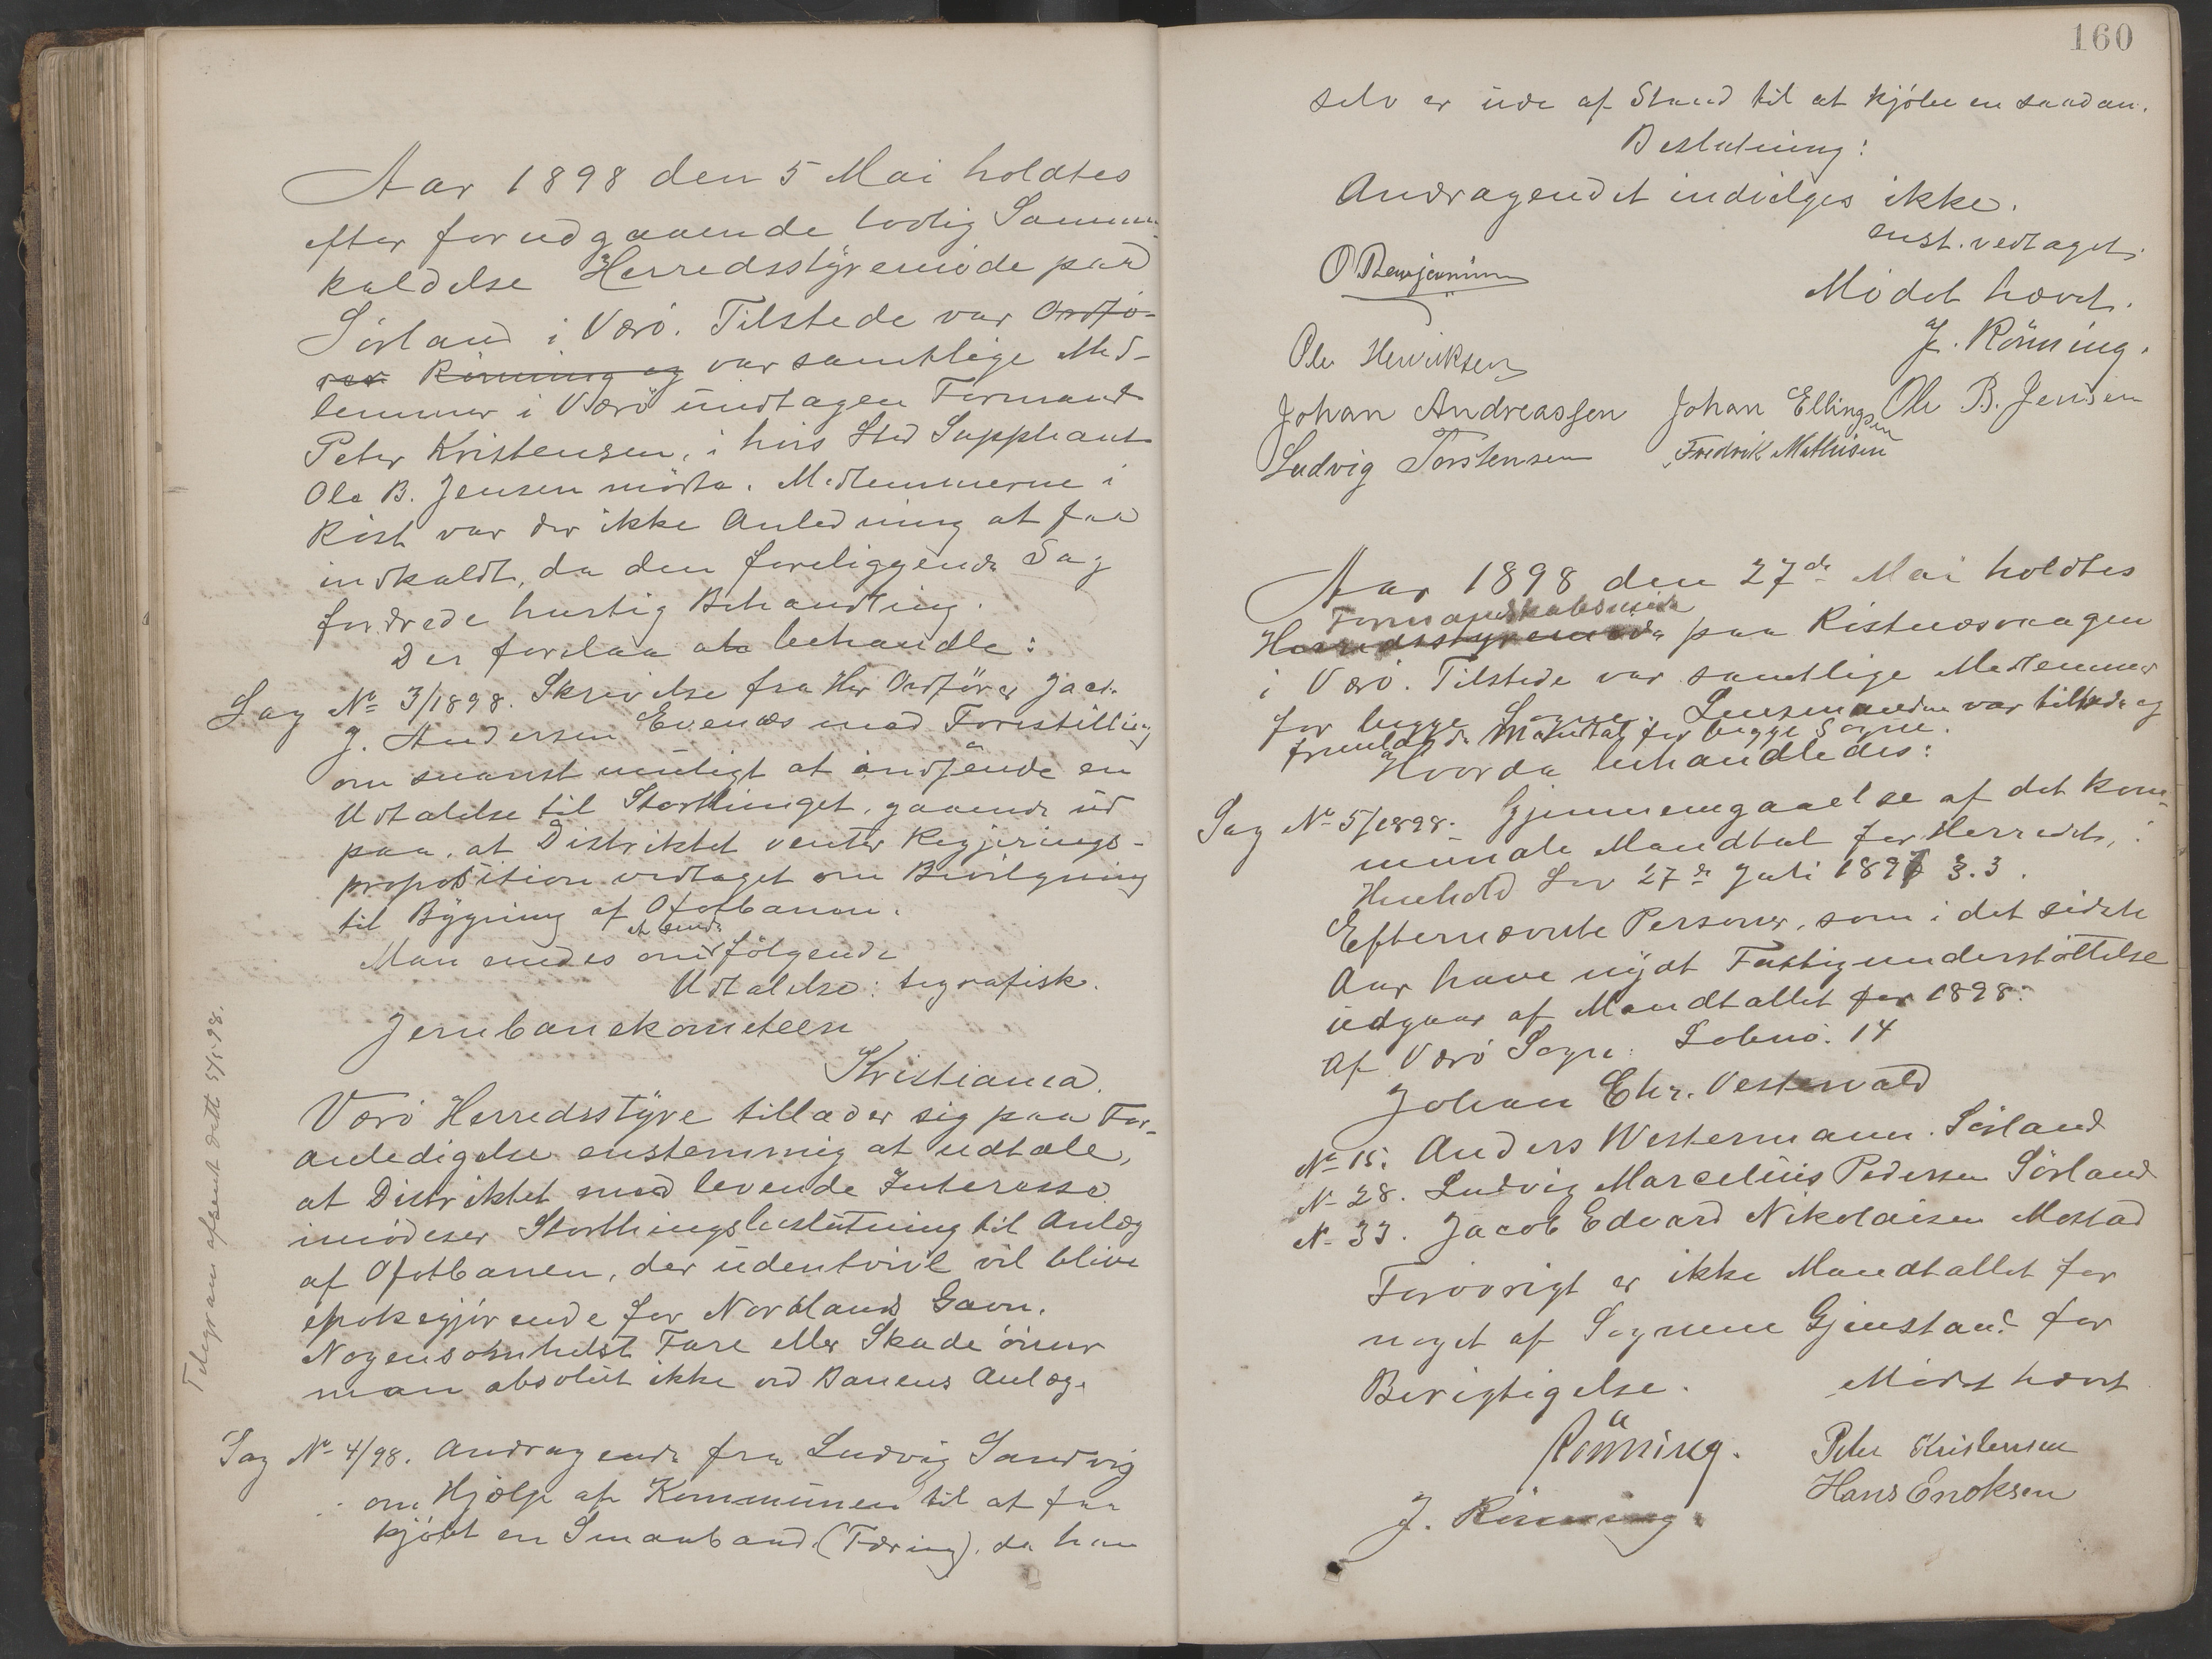 Aar 1898 den 5 Mai holdtes
efter forudgaaende lovlig Samm-
kaldelse Herredsstyremøde paa
Sørland i Værø. Tilstede var Ordfø-
rer Rönning og var samtlige Med-
lemmer i Værö undtagen Formand
Peter Kristensen, i hvis Sted Suppleant
Ole B. Jensen mødte. Medlemmerne i
Røst var der ikke Anledning at faa
indkaldt, da den foreliggende Sag
fordrede hurtig Behandling.
Der forelaa at behandle:
Sag No 3/1898. Skrivelse fra Hr Ordfører
J. Andersen Evenæs med Forestilling
om snarest muligt at indsende en
Udtalelse til Storthinget, gaaende ud
paa, at Distriktet venter Regjerings-
proposition vedtaget om Bevilgning
til Bygning af Ofotbanen.
Man enedes om at sende følgende
Udtalelse: tegrafisk.
Jernbanekometeen
Kristiania.
Værö Herredsstyre tillader sig paa For-
anledigelse enstemmig at udtale,
at Distriktet med levende Interesse
imødeser Storthingsbeslutning til Anlæg
af Ofotbanen, der udentvivl vil blive
epokegjørende for Nordlands Gavn.
Nogensomhelst Fare eller Skade øiner
man absolut ikke ved Banens Anlæg.
Telegram afsendt dette 5/5 98.
Sag No 4/98. Andragende fra Ludvig Sandvig
om Hjælp af Kommunen til at faa
kjøbt en Smaabaad (Færing), da han
160
selv er ude af Stand til at kjøbe en saadan.
Beslutning:
Andragendet indvilges ikke.
enst. vedtaget.
Mødet hævet.
O Benjaminsen
J. Rönning.
Ole Henriksen
Johan Andreassen Johan Ellingsen Ole B. Jensen
Ludvig Torstensen Fredrik Mathisen
Aar 1898 den 27de Mai holdtes
Formandskabsmøde
Herredsstyremøde paa Røstnesvaagen
i Værö. Tilstede var samtlige Medlemmer
for begge Sogne. Lensmanden var tilstede og
fremlagde Mandtal for begge Sogne.
Hvorda behandledes:
Sag No 5/1898. Gjennemgaaelse af det kom-
munale Mandtal for Herredet, i
Henhold Lov 27de Juli 1897 § 3.
Efternævnte Personer, som i det sidste
Aar have nydt Fattigunderstøttelse
udgaar af Mandtallet for 1898:
Af Værö Sogn. Løbeno. 14
Johan Chr. Vestervald
No 15. Anders Westermann. Sørland
No 28. Ludvig Marcelius Pedersen Sørland
No 33. Jacob Edvard Nikolaisen Mostad
Forøvrigt er ikke Mandtallet for
noget af Sognene Gjenstand for
Berigtigelse. Mødet hævet
Rönning. Peter Kristensen
Hans Enoksen
J. Rönning.